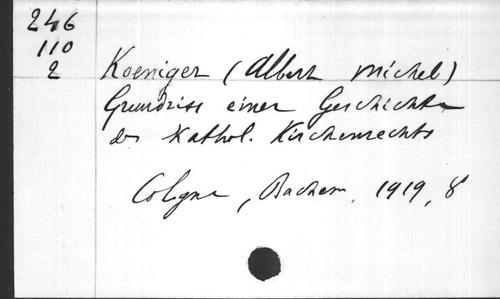 246
110
2
Koeniger (Albert Michel)
Grundriss einer Geschichte
des Kathol. Kirchenrechts
Cologne, Bachem, 1919, 8°